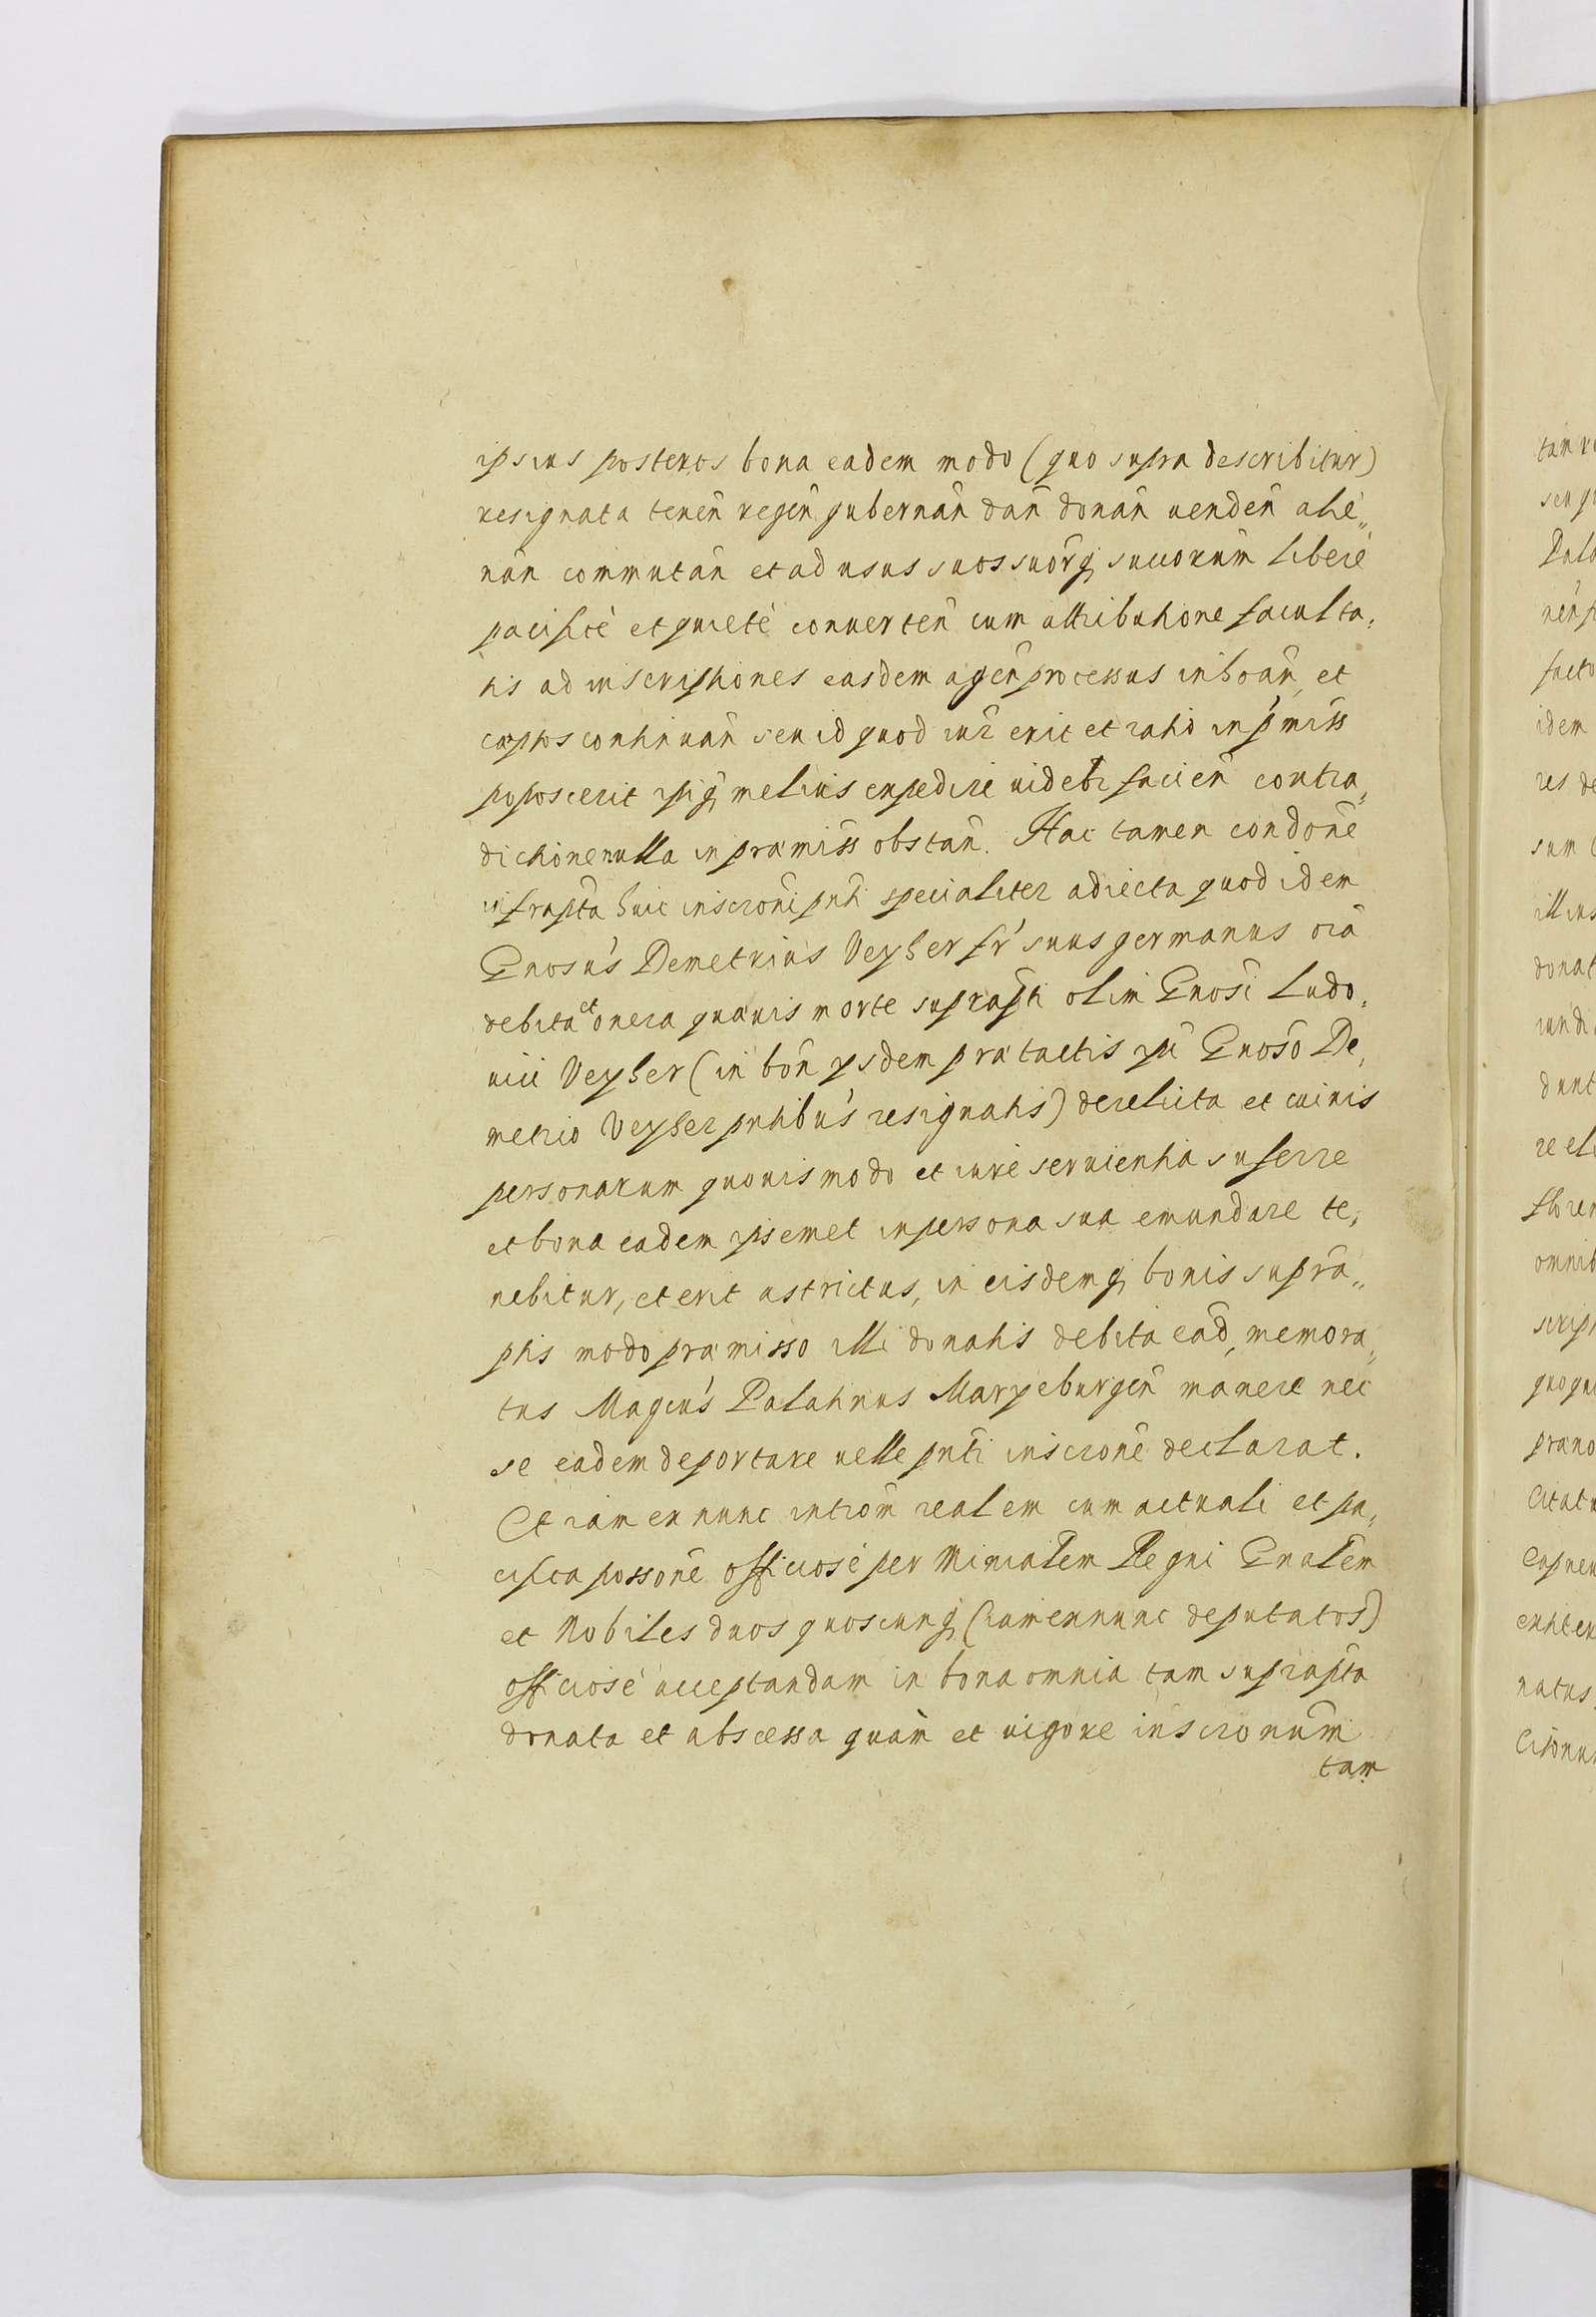 ipsius posteros bona eadem modo (quo supra describitur)
resignata teneñ regeñ gubernañ dañ donañ uendeñ alie„
nañ commutañ et ad usus suos suorq; succorum libere
pacificè et quietè conuerteñ cum attributione faculta,
tis ad inscriptiones easdem ageñ processus inhoañ, et
cæptos continuañ seu id quod iur̃ erit et ratio in p̃miss̃
poposcerit ipiq; melius expedire uidebr facieñ contra„
dictione nulla in præmiss̃ obstañ. Hac tamen condone
infrapta huic inscroni pnti specialiter adiecta quod idem
Gnosus Demetrius Veyher fr̃ suus germanus oĩa
debita et onera quæuis morte suprapti olim Gnosi Ludo,
uici Veyher (in boñ ysdem prætactis ipi Gnoso De,
metrio Veyher pntibus resignatis) derelicta et cuiuis
personarum quouis modo et iure seruientia sufferre
et bona eadem ipsemet in persona sua emundare te,
nebitur, et erit astrictus, in eisdemq; bonis supra„
ptis modo præmisso illi donatis debita ead, memora„
tus Magcus Palatinus Maryeburgeñ manere nec
se eadem deportare uelle pnti inscrone declarat.
Et iam ex nunc introm̃ realem cum actuali et pa,
cifica possone officiose per Mirialem Regni Gnalem
et Nobiles duos quoscunq; (iam ex nunc deputatos)
officiosè acceptandam in bona omnia tam suprapta
donata et abscessa quàm et uigore inscronum
tam